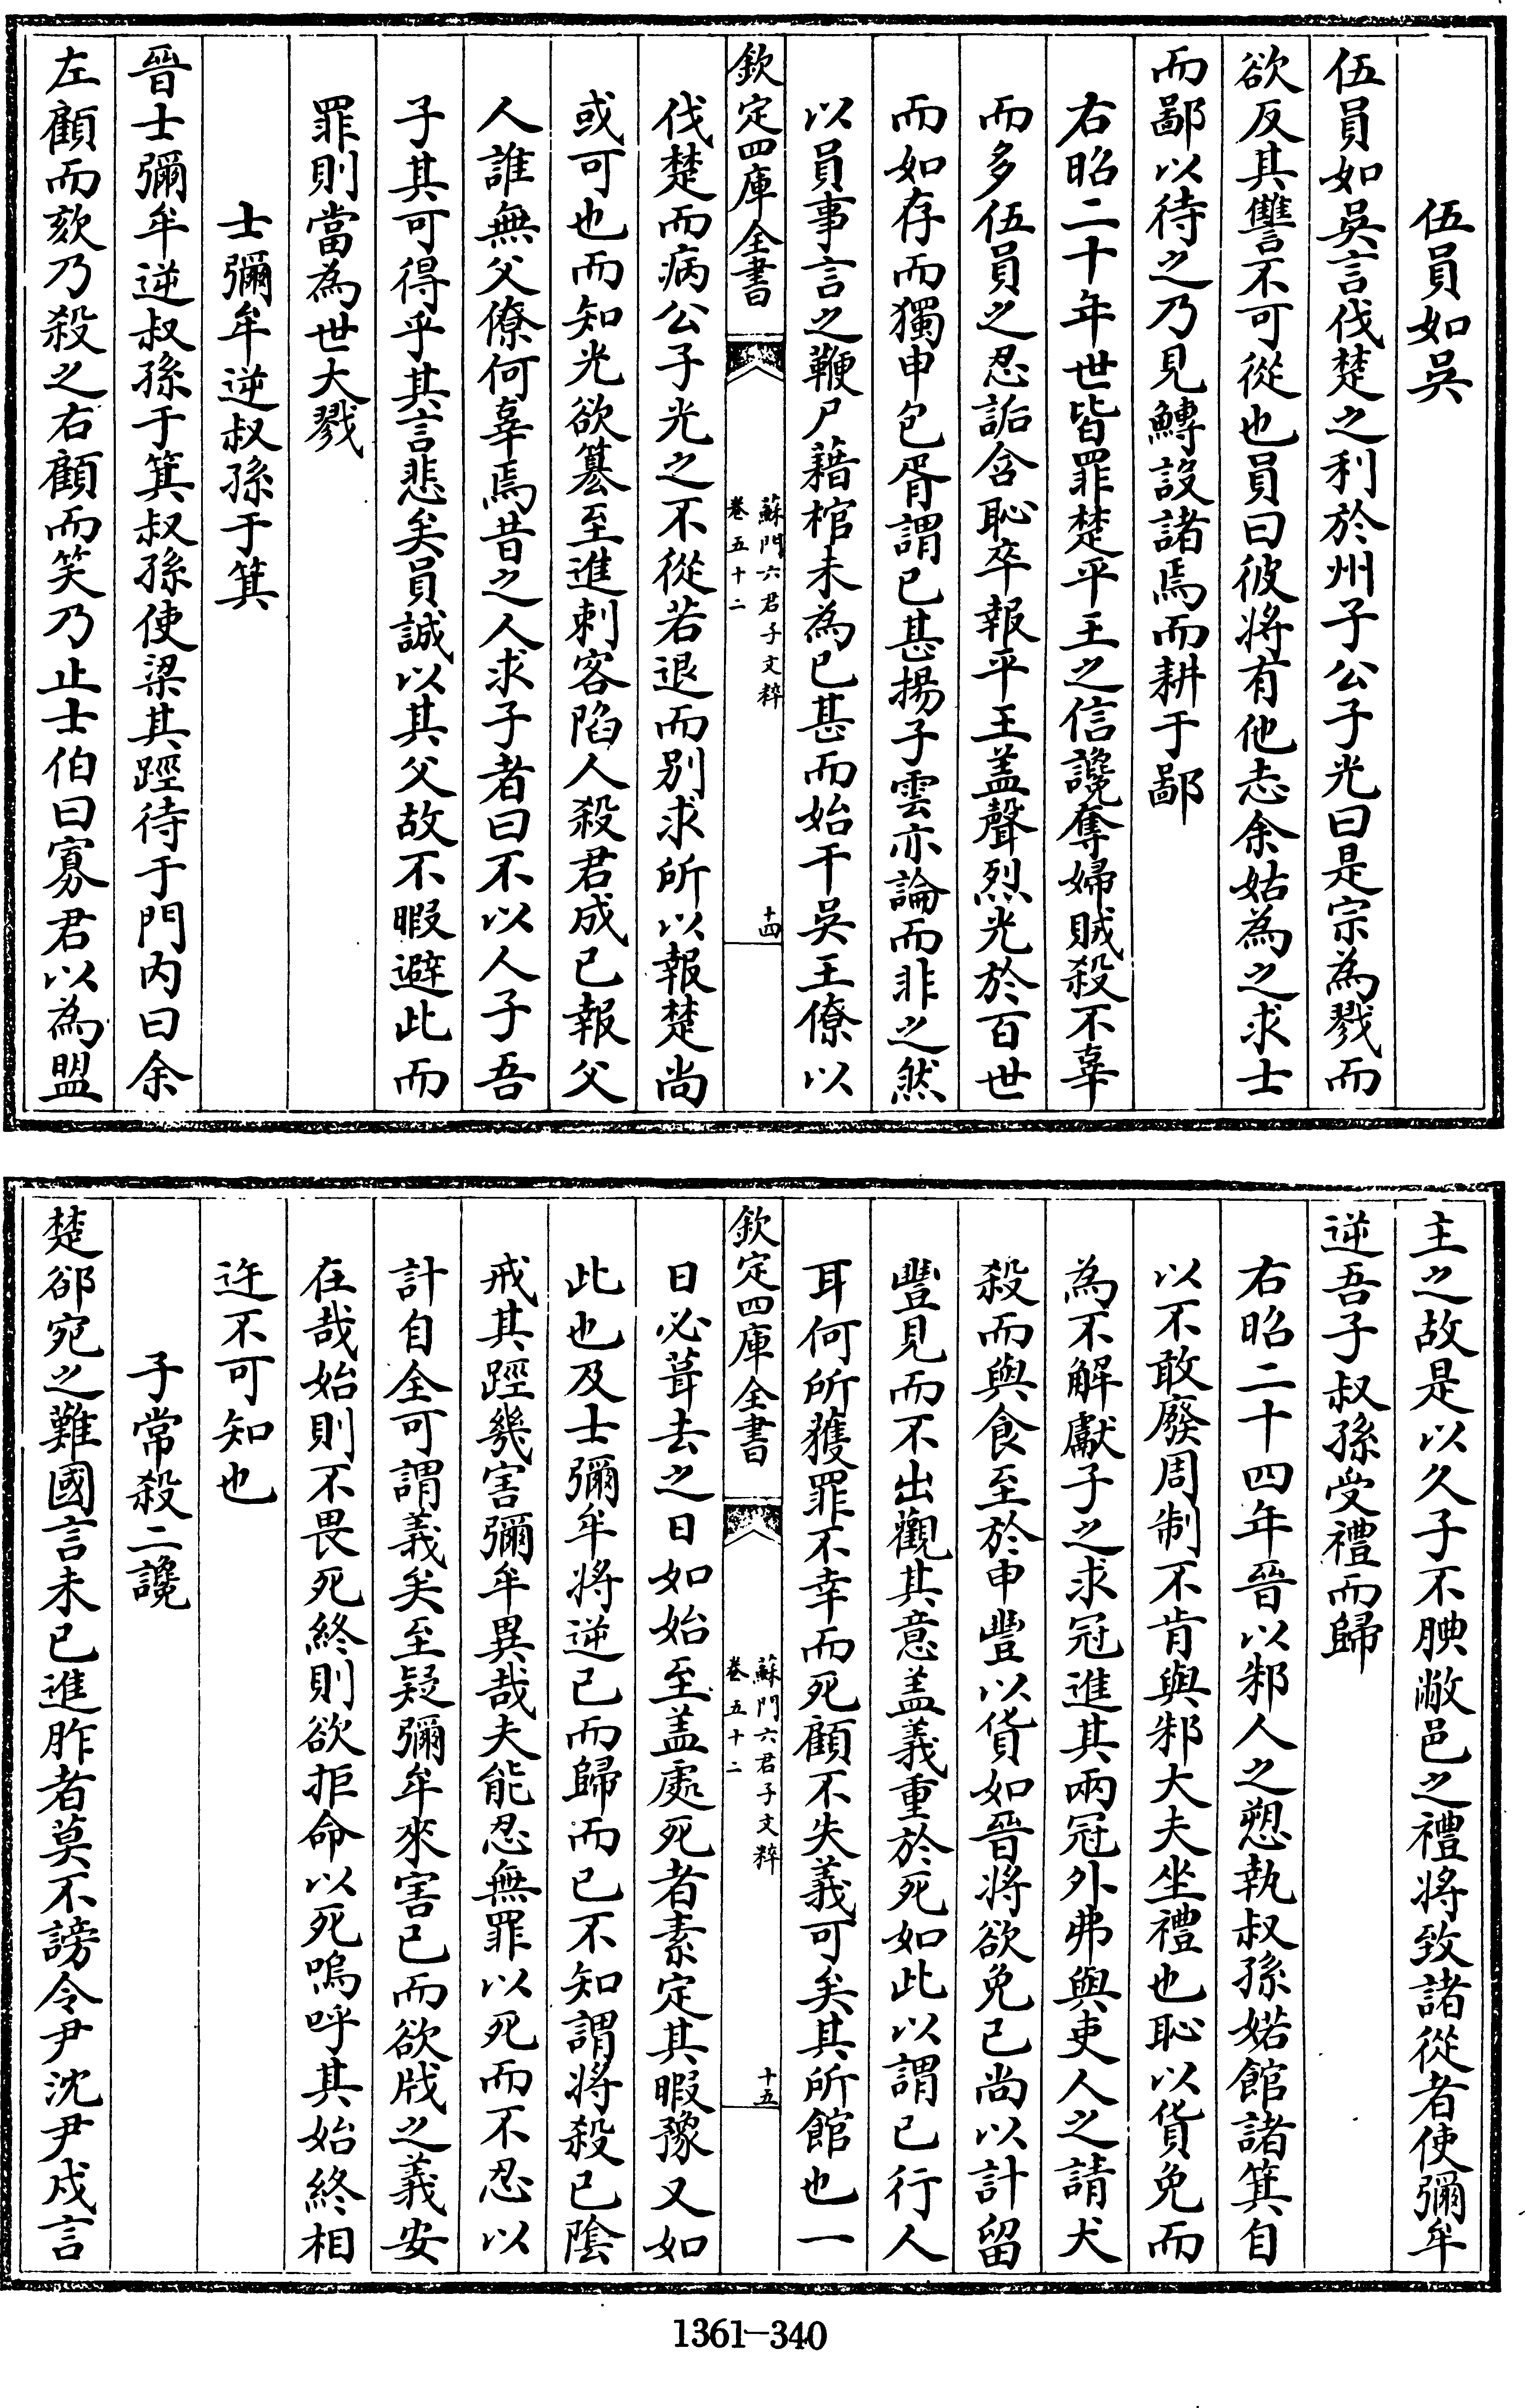 伍員如吳
伍員如吳言伐楚之利於州子公子光曰是宗為戮而
欲反其讐不可從也員曰彼將有他志余姑為之求士
而鄙以待之乃見鱄設諸焉而耕于鄙
右昭二十年世皆罪楚平王之信讒奪婦賊殺不辜
而多伍員之忍詬含恥卒報平王盖聲烈光於百世
而如存而獨申包胥謂已甚揚子雲亦論而非之然
以員事言之鞭尸藉棺未為已甚而始干吳王僚以
欽定四庫全書
蘇門六君子文粹
卷五十二
十四
伐楚而病公子光之不從若退而别求所以報楚尚
或可也而知光欲簒至進刺客陷人殺君成已報父
人誰無父僚何辜焉昔之人求子者曰不以人子吾
子其可得乎其言悲矣員誠以其父故不暇避此而
罪則當為世大戮
士彌牟逆叔孫于箕
晉士彌牟逆叔孫于箕叔孫使梁其踁待于門内曰余
左顧而欬乃殺之右顧而笑乃止士伯曰寡君以為盟
主之故是以久子不腆敝邑之禮將致諸從者使彌牟
逆吾子叔孫受禮而歸
右昭二十四年晉以邾人之愬執叔孫婼館諸箕自
以不敢廢周制不肯與邾大夫坐禮也恥以貨免而
為不解獻子之求冠進其兩冠外弗與吏人之請犬
殺而與食至於申豐以貨如晉將欲免已尚以計留
豐見而不出觀其意盖義重於死如此以謂已行人
耳何所獲罪不幸而死顧不失義可矣其所館也一
欽定四庫全書
蘇門六君子文粹
卷五十二
十五
日必葺去之日如始至盖處死者素定其暇豫又如
此也及士彌牟將逆已而歸而已不知謂將殺已陰
戒其踁幾害彌牟異哉夫能忍無罪以死而不忍以
計自全可謂義矣至疑彌牟來害已而欲戕之義安
在哉始則不畏死終則欲拒命以死嗚呼其始終相
迕不可知也
子常殺二讒
楚郤宛之難國言未已進胙者莫不謗令尹沈尹戌言
1361-340